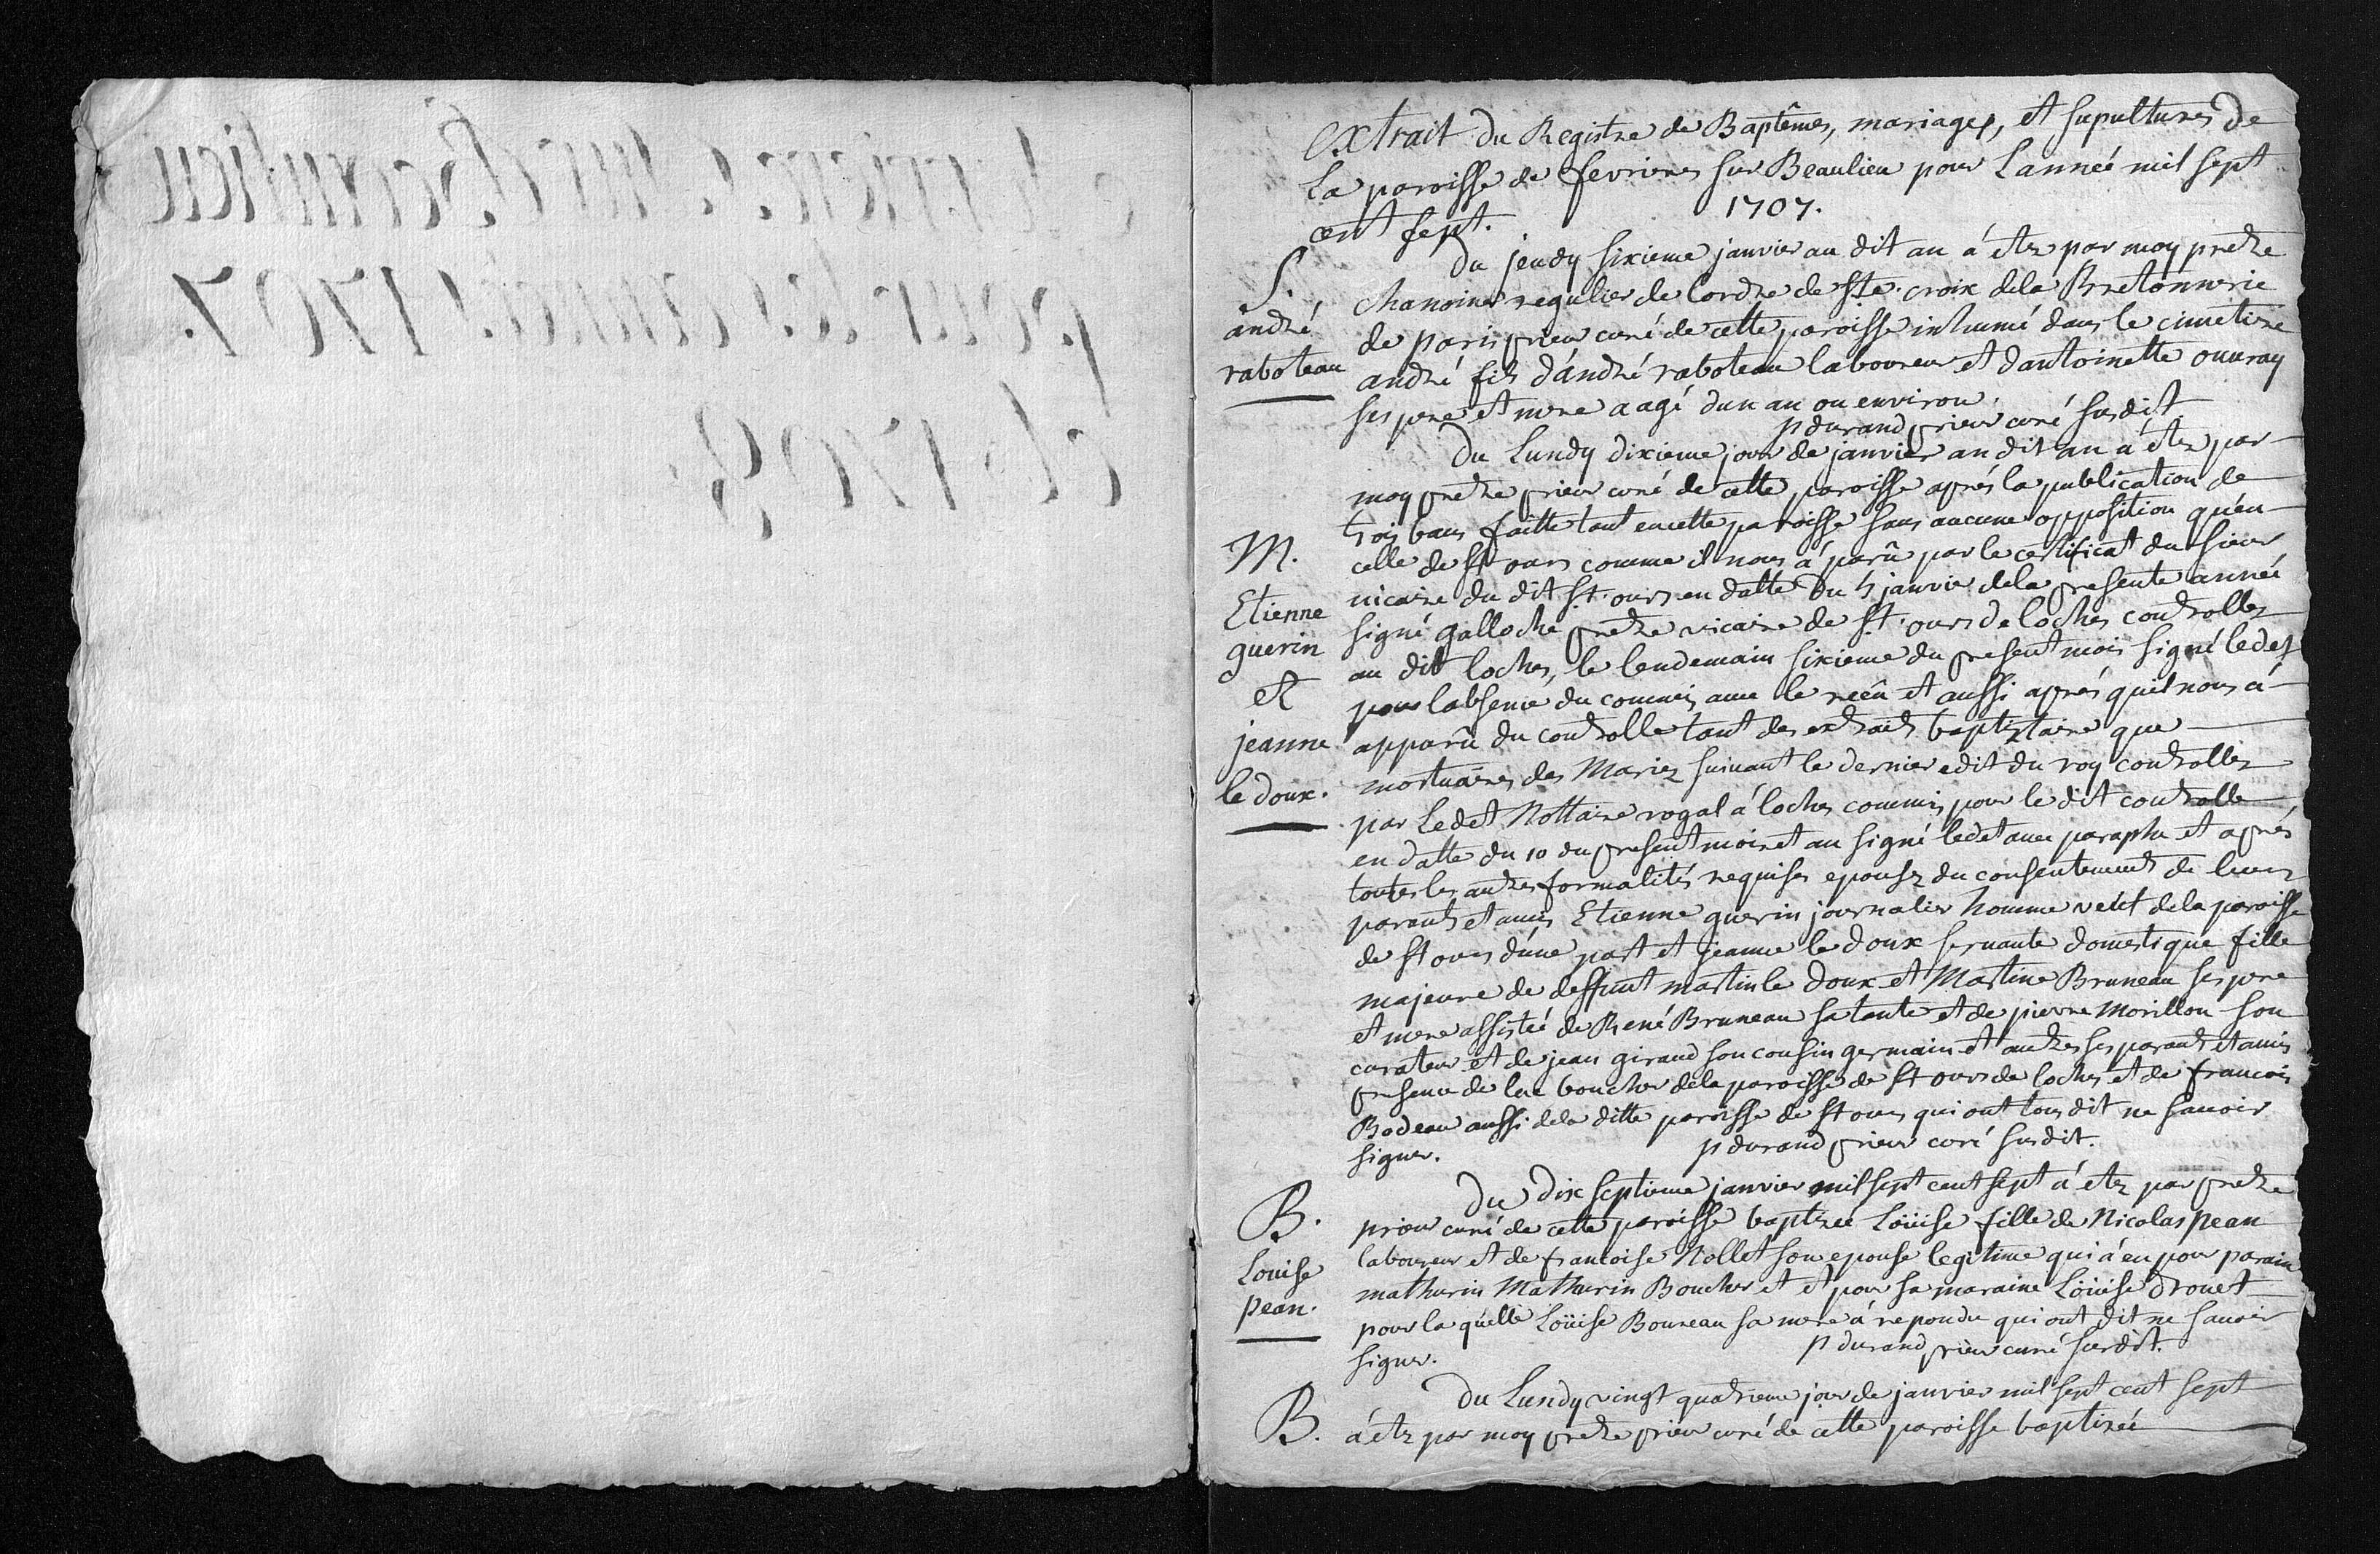 extrait du Registre de Baptêmes, mariages, et sepultures de
La paroisse de ferrieres sur Beaulieu pour Lanneé mil sept
cent sept.
1707.
S.
andré
raboteau
Du jeudy sixieme janvier au dit an á etez par moy pretre
chanoine regulier de lordre de Ste. croix dela Bretonnerie
de paris prieur curé de cette paroisse inhumé dans le cimetiere
andré fils dándré raboteau laboureur et dantoinette ouvray
ses pere et mere aagé dun an ou environ.
p durand prieur curé susdit.
M.
Etienne
guerin
et
jeanne
le doux.
Du Lundy dixieme jour de janvier au dit an a étez par
moy pretre prieur curé de cette paroisse aprés la publication de
trois bans faitte tant en cette paroisse sans aucune opposition quén
celle de St ours comme il nous á parû par le certificat du sieur
vicaire du dit St. ours en datte du 5 janvier dela presente anneé
signé galloche pretre vicaire de St. ours de loches controllez
au dit loches, le lendemain sixieme du present mois signé ledet
pour labsence du commis avec le reçû et aussi aprés quil nous á
apparû du controlle tant des extraits baptiztaire que
mortuaires des Mariez suivant le dernier edit du roy controllez
par Ledet Nottaire royal á loches commis pour le dit controlle
en datte du 10 du present mois et an signé ledet avec paraphe et aprés
toutes les autres formalités requises epousez du consentement de leurs
parents et amis Etienne guerin journalier homme veût dela paroisse
de St ours dúne part et jeanne le doux servante domestique fille
majeure de deffunt martin le doux et Martine Bruneau ses pere
et mere assisteé de René Bruneau sa tante et de pierre Morillon son
curateur et de jean giraud son cousin germain et autres ses parents et amis
presence de luc boucher dela paroisse de St ours de loches et de francois
Bodeau aussi dela ditte paroisse de St ours qui ont tous dit ne sauoir
signer.
p durand prieur curé susdit.
B.
Louise
pean.
Du dix septieme janvier mil sept cent sept á étez par pretre
prieur curé de cette paroisse baptizeé Loüise fille de Nicolas pean
laboureur et de francoise Nollet son epouse legitime qui á eu pour parain
mathurin Mathurin Boucher et et pour sa maraine Loüise drouet
pour la quélle Loüise Bouneau sa mere á repondu qui ont dit ne sauoir
signer.
p durand prieur curé susdit.
B.
Du Lundy vingt quatrieme jour de janvier mil sept cent sept
á étez par moy pretre prieur curé de cette paroisse baptizeé